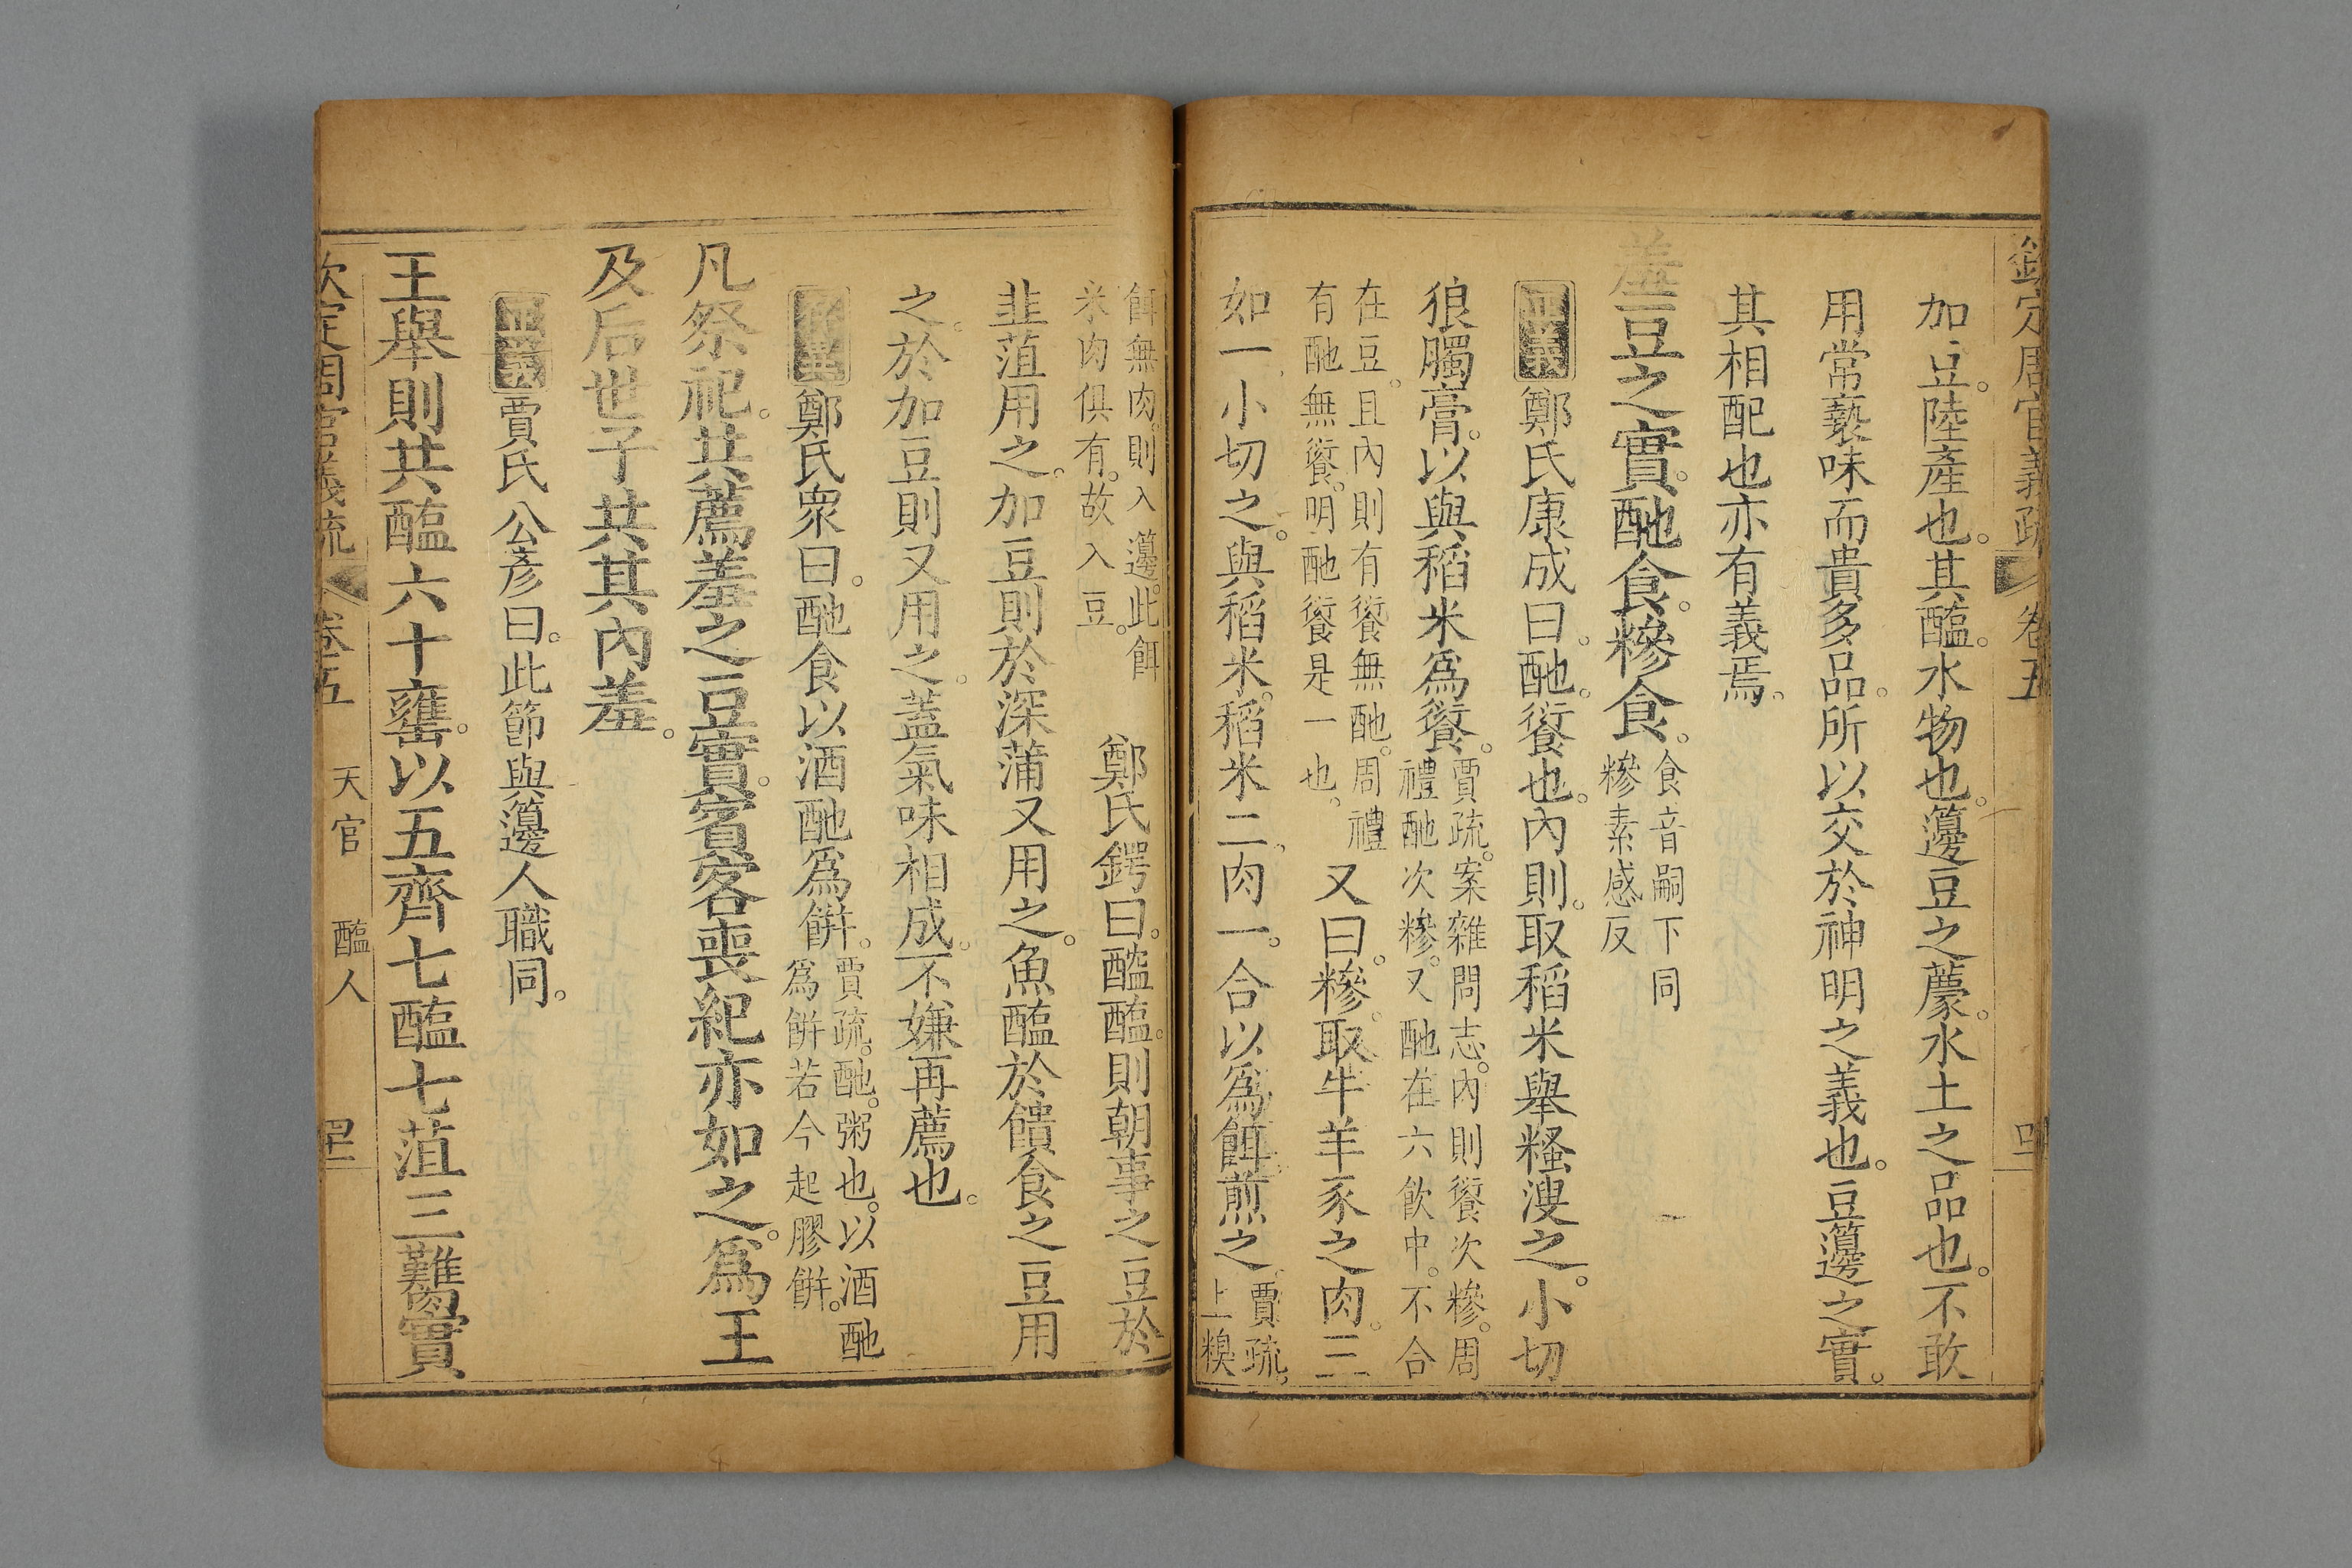 欽定周官義疏 卷五
加豆。陸產也。其醢。水物也。籩豆之薦。水土之品也。不敢
用常褻味而貴多品。所以交於神明之義也。豆籩之實。
其相配也亦有義焉。
羞豆之實。酏食。糝食。食音嗣下同
糝素感反
正義鄭氏康成曰。酏。餰也。內則。取稻米舉糔溲之。小切
狼臅膏。以與稻米爲餰。賈疏。案雜問志。內則餰次糝。周
禮酏次糝。又酏在六飲中。不合
在豆。且內則有餰無酏。周禮
有酏無餰。明酏餰是一也。又曰。糝。取牛羊豕之肉。三
如一小切之。與稻米。稻米二肉一。合以爲餌煎之。賈疏。
上糗
餌無肉則入籩。此餌
米肉俱有。故入豆。鄭氏鍔曰。醓醢。則朝事之豆於
韭菹用之。加豆則於深蒲又用之。魚醢於饋食之豆用
之。於加豆則又用之。蓋氣味相成。不嫌再薦也。
鄭氏衆曰。酏食以酒酏爲餅。賈疏。酏。粥也。以酒酏
爲餅若今起膠餅。
凡祭祀。共薦羞之豆實。賓客喪紀亦如之。爲王
及后世子共其內羞。
正義賈氏公彥曰。此節與籩人職同。
王舉則共醢六十罋。以五齊七醢七菹三臡實
欽定周官義疏 卷五 天官 醢人